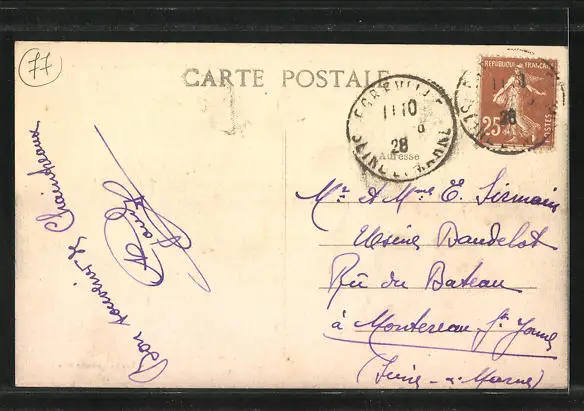 77
CARTE POSTALE
REPUBLIQUE FRANÇAISE
25
POSTES
11 10
28
SEINE-ET-MARNE
Adresse
28
Bon souvenir de Champeaux
Mr & Mme E. Sirmain
Usine Baudelot
Rue du Bateau
à Montereau St Yonne
(Seine-&-Marne)